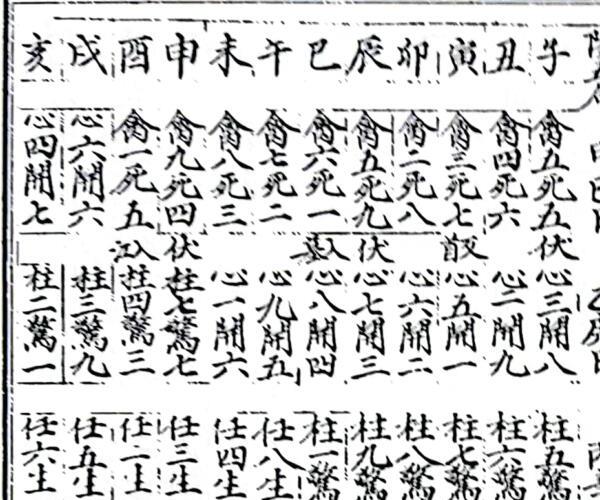 子
丑
寅
卯
辰
巳
午
未
申
酉
戌
亥
禽五死五伏
禽四死六
禽三死七
禽二死八
禽五死九伏
禽六死一
禽七死二
禽八死三
禽九死四伏
禽一死五
心六開六
心四開七
心三開八
心二開九
心五開一
心六開二
心七開三
心八開四
心九開五
心一開六
柱七驚七
柱四驚三
柱三驚九
柱二驚一
柱五驚
柱六驚
柱七驚
柱八驚
柱九驚
柱一驚
任八生
任四生
任三生
任二生
任五生
任六生